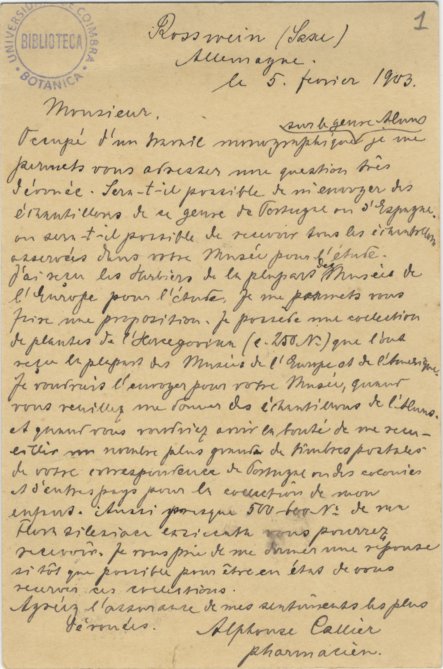 1
UNIVERSIDADE DE COIMBRA
BIBLIOTECA
BOTANICA
Rosswein (Saxe)
Allemagne.
le 5. fevrier 1903.
Monsieur.
sur le genre Alnus
Occupé d'un travail monographique je me
permets vous adresser une question très
Sera-t-il possible de m'envoyer des
échantillons de ce genre de Portugal ou d'Espagne
ou sera-t-il possible de recevoir tous les échantillons
conservés dans votre Musée pour l'étude.
J'ai reçu les Herbiers de la plupart des Musées de
l'Europe pour l'étude. Je me permets vous
faire une proposition. Je possède une collection
de plantes de l'Hercegovina (c. 250 No.) que l'ont
reçu la plupart des Musées de l'Europe et de l'Amerique.
Je voudrais l'envoyer pour votre Musée, quand
vous veuillez me donner des échantillons de l'Alnus.
et quand vous voudriez avoir la bonté de me recu-
eillir un nombre plus grande de timbres postales
de votre correspondence de Portugal ou des colonies
et d'autres pays pour la collection de mon
enfant. Aussi presque 500-600 No. de ma
Flora silesiaca exsiccata vous pourrez
recevoir. Je vous prie de me donner une réponse
sitôt que possible pour être en état de vous
ces collections.
Agréez l'assurance de mes sentiments les plus
dévoués.
Alphonse Callier
pharmacien.